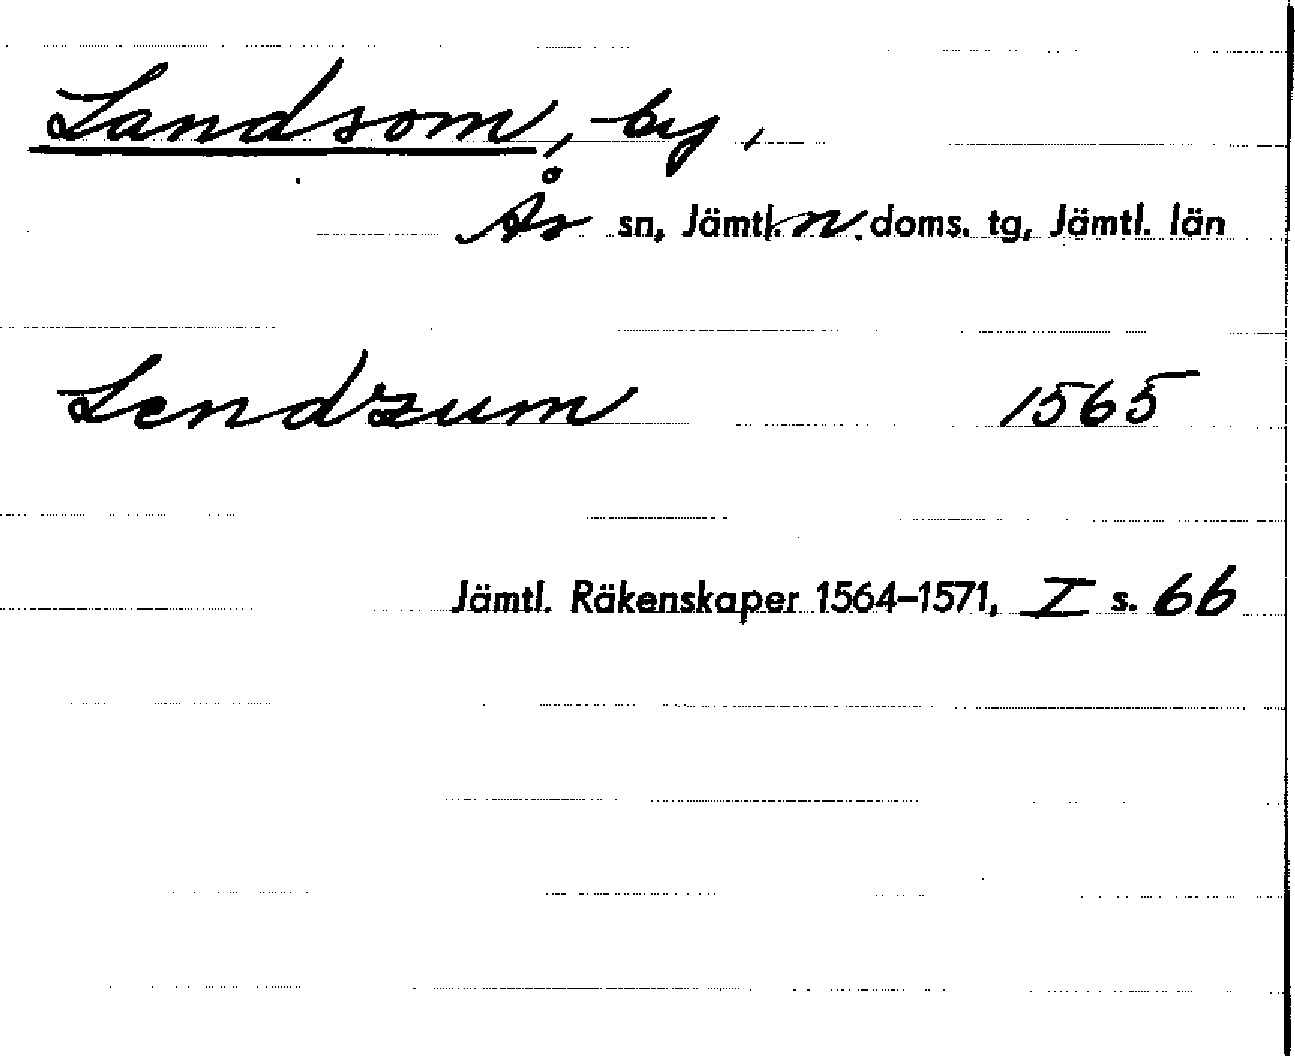 Landsom, by,
Ås sn, Jämtl. n. doms. tg, Jämtl. län
Lendzum 1565
Jämtl. Räkenskaper 1564–1571, I s. 66